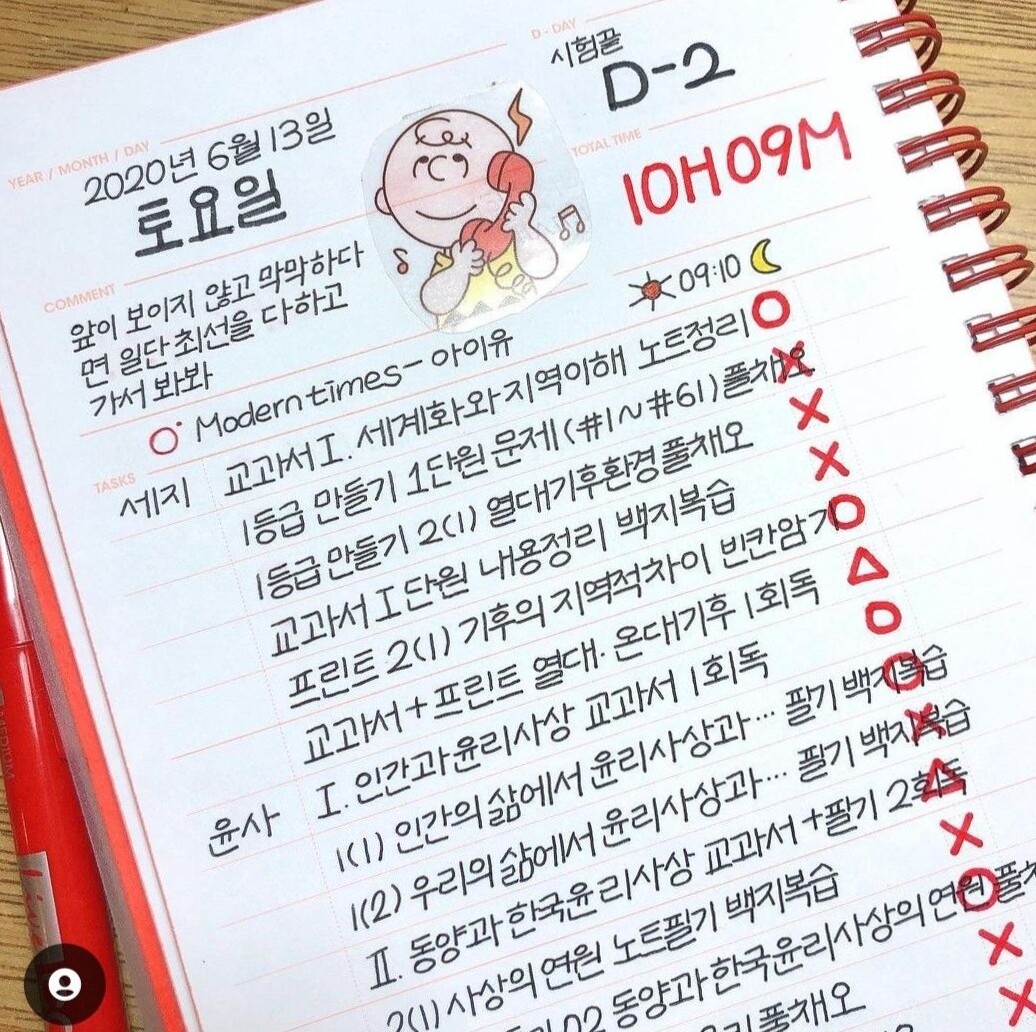 D-DAY
시험끝
D-2
YEAR / MONTH / DAY
2020년 6월 13일
토요일
TOTAL TIME
10H 09M
COMMENT
앞이 보이지 않고 막막하다
면 일단 최선을 다하고
가서 봐봐
09:10
Modern times - 아이유
TASKS
세지
교과서 I. 세계화와 지역이해 노트정리
1등급 만들기 1단원 문제 (#1~#61) 풀채오
1등급 만들기 2(1) 열대기후환경 풀채오
교과서 I단원 내용정리 백지복습
프린트 2(1) 기후의 지역적차이 빈칸암기
교과서 + 프린트 열대·온대기후 1회독
윤사
I. 인간과 윤리사상 교과서 1회독
1(1) 인간의 삶에서 윤리사상과… 필기 백지복습
1(2) 우리의 삶에서 윤리사상과… 필기 백지복습
II. 동양과 한국윤리사상 교과서 + 필기 2회독
2(1) 사상의 연원 노트필기 백지복습
02 동양과 한국윤리사상의 연원
풀채오